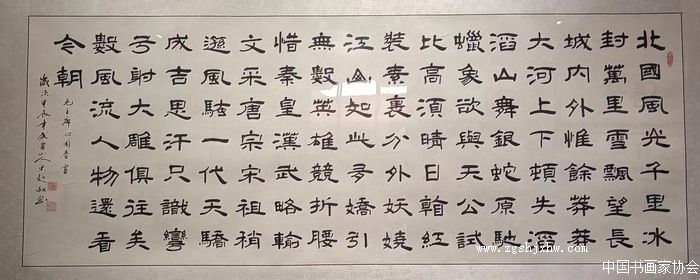 北國風光千里冰
封萬里雪飄望長
城內外惟餘莽莽
大河上下頓失滔
滔山舞銀蛇原馳
蠟象欲與天公試
比高須晴日看紅
裝素裹分外妖嬈
江山如此多嬌引
無數英雄競折腰
惜秦皇漢武略輸
文采唐宗宋祖稍
遜風騷一代天驕
成吉思汗只識彎
弓射大雕俱往矣
數風流人物還看
今朝
毛主席沁園春雪
歲次甲辰年
www.zgshjxhw.com
中国书画家协会